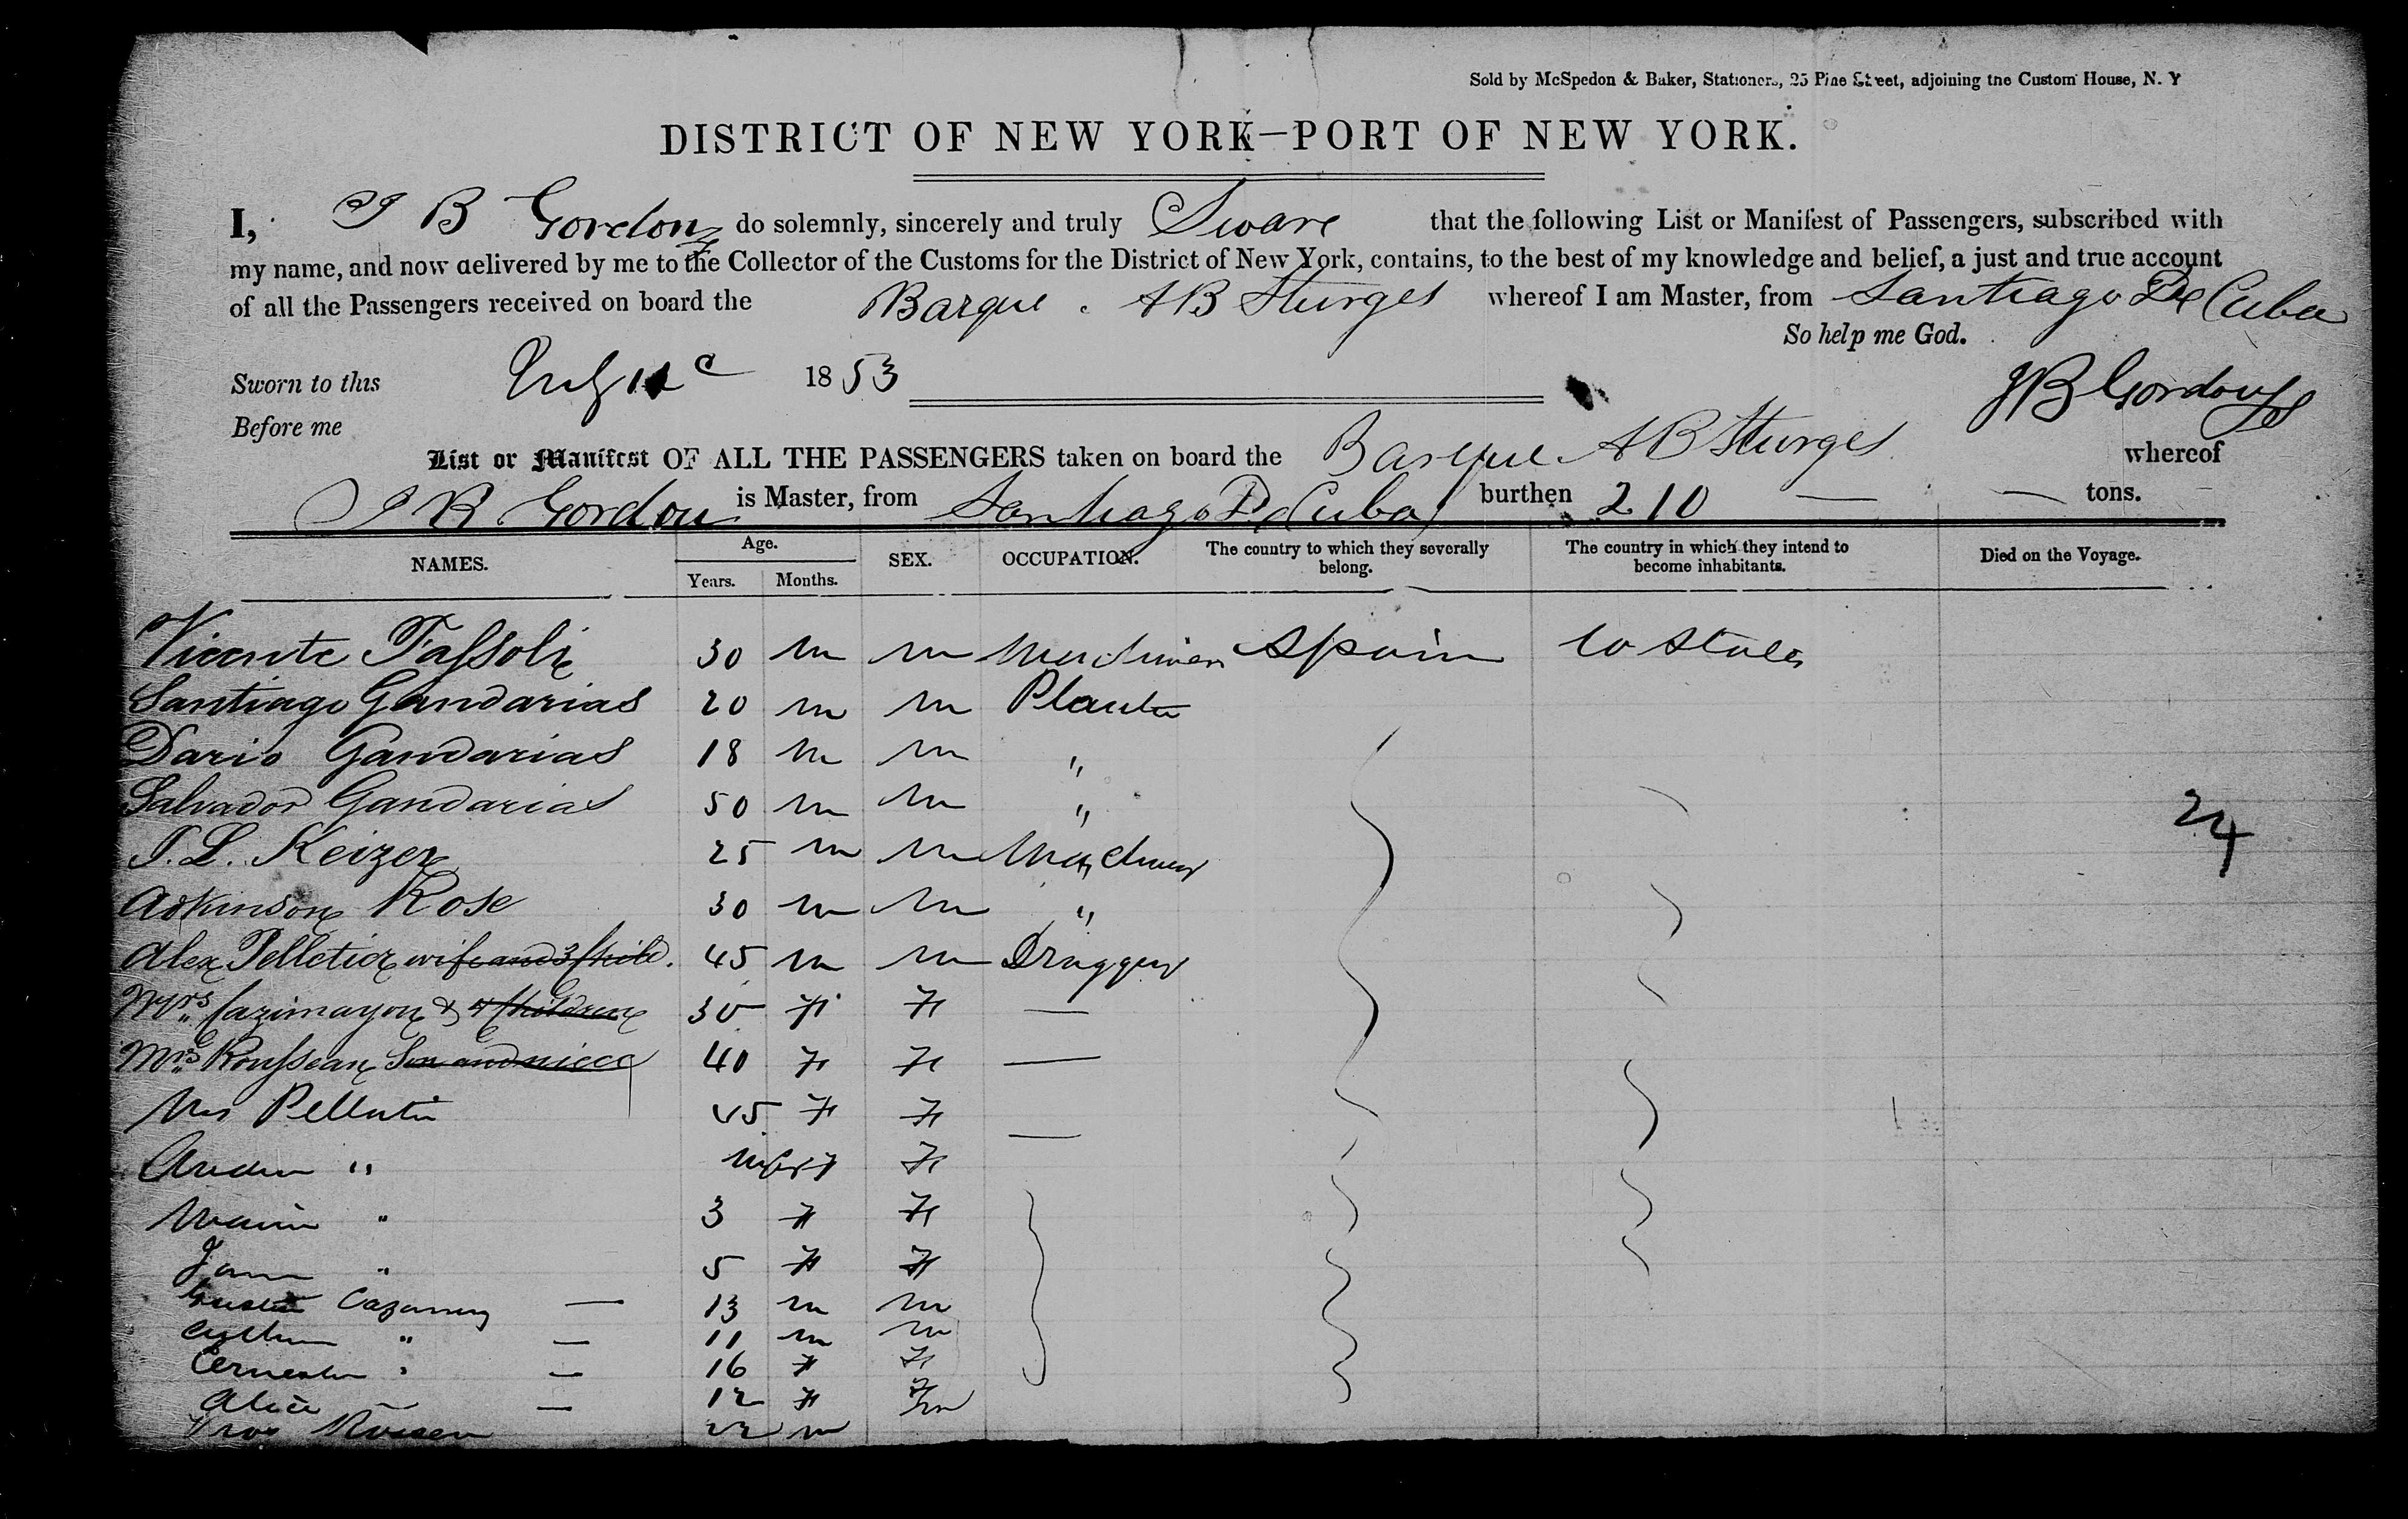 Sold by McSpedon & Baker, Stationers, 25 Pine Street, adjoining the Custom House, N. Y
DISTRICT OF NEW YORK—PORT OF NEW YORK.
I, J B Gordon do solemnly, sincerely and truly Sware that the following List or Manifest of Passengers, subscribed with
my name, and now delivered by me to the Collector of the Customs for the District of New York, contains, to the best of my knowledge and belief, a just and true account
of all the Passengers received on board the Barque A B Sturges whereof I am Master, from Santiago De Cuba
So help me God.
Sworn to this July 1853
J B Gordon
Before me
List or Manifest OF ALL THE PASSENGERS taken on board the Barque A B Sturges whereof
J B Gordon is Master, from Santiago D Cuba burthen 210 — — tons.
NAMES. Age. Years. Months. SEX. OCCUPATION. The country to which they severally belong. The country in which they intend to become inhabitants. Died on the Voyage.
Vicente 30 m m Spain States
Santiago Gandarias 20 m m Planter
Dario Gandarias 18 m m "
Salvador Gandarias 50 m m "
24
J. L. Keizer 25 m m
Adkinson Rose 30 m m "
Alex Pelletier wife and 3 Child. 45 m m
Mrs Cazimayon & 4 Children 30 F F —
Mrs Rousseau Son and niece 40 F F —
Mrs 45 F F —
" F
" 3 F F
" 5 F F
— 13 m m
" — 11 m m
" — 16 F F
Alice — 12 F F
22 m m